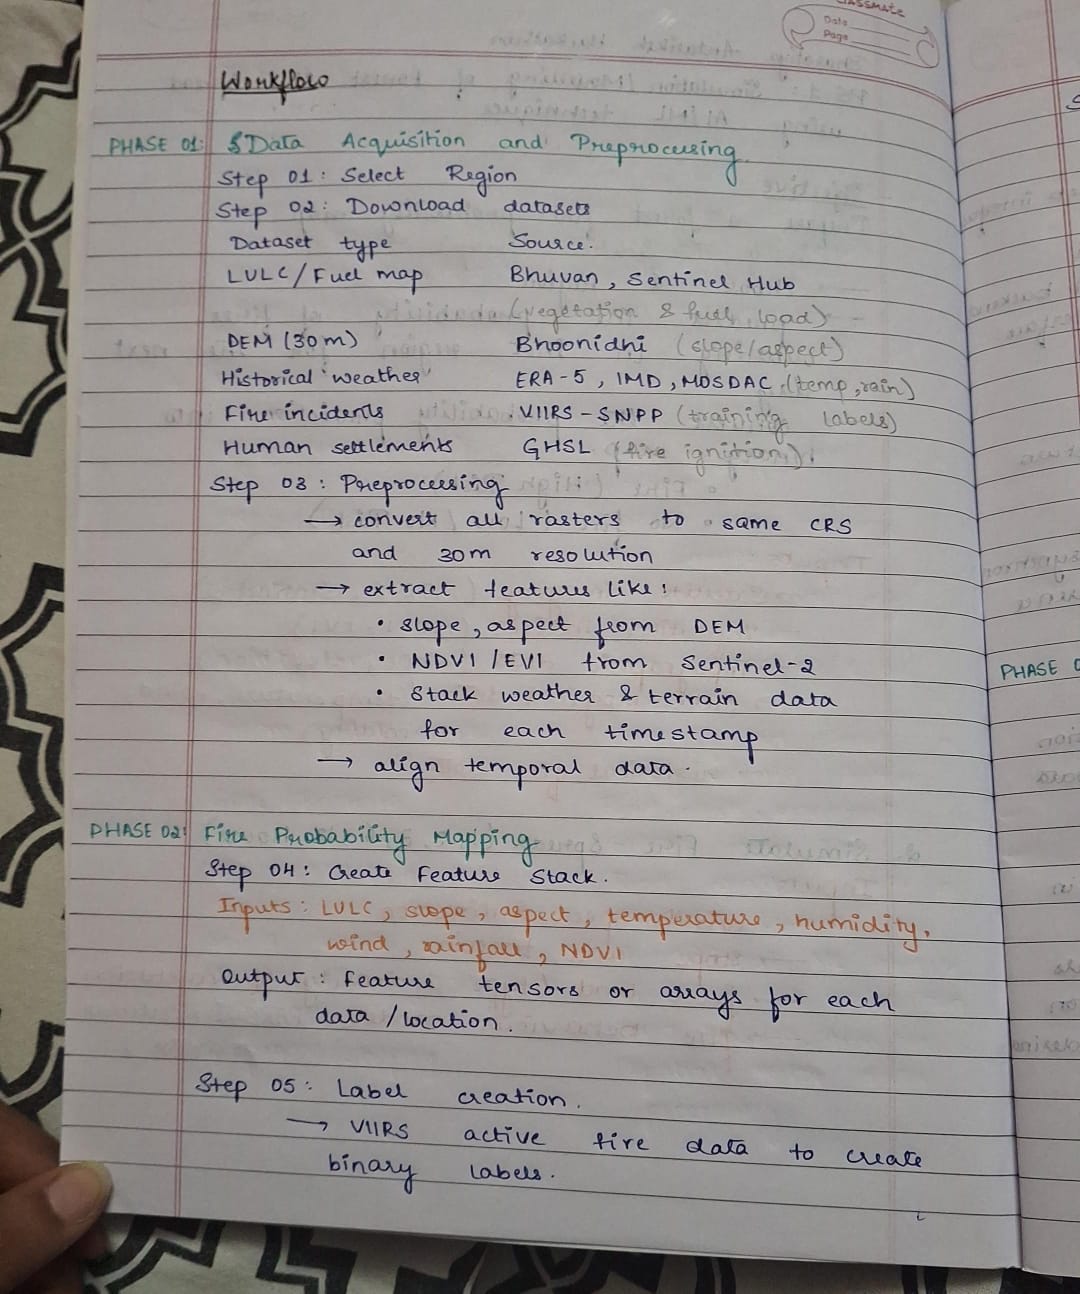 CLASSMATE
Date
Page
Workflow
PHASE 01: Data Acquisition and Preprocessing
Step 01: Select Region
Step 02: Download datasets
Dataset type Source:
LULC/Fuel map Bhuvan, Sentinel Hub
(vegetation & fuel load)
DEM (30m) Bhoonidhi (slope/aspect)
Historical weather ERA-5, IMD, MOSDAC (temp, rain)
Fire incidents VIIRS-SNPP (training labels)
Human settlements GHSL (fire ignition).
Step 03: Preprocessing
→ convert all rasters to same CRS
and 30m resolution
→ extract features like:
• slope, aspect from DEM
• NDVI/EVI from Sentinel-2
• Stack weather & terrain data
for each timestamp
→ align temporal data.
PHASE 02: Fire Probability Mapping
Step 04: Create Feature Stack.
Inputs: LULC, slope, aspect, temperature, humidity,
wind, rainfall, NDVI
Output: feature tensors or arrays for each
data/location.
Step 05: Label creation.
→ VIIRS active fire data to create
binary labels.
PHASE